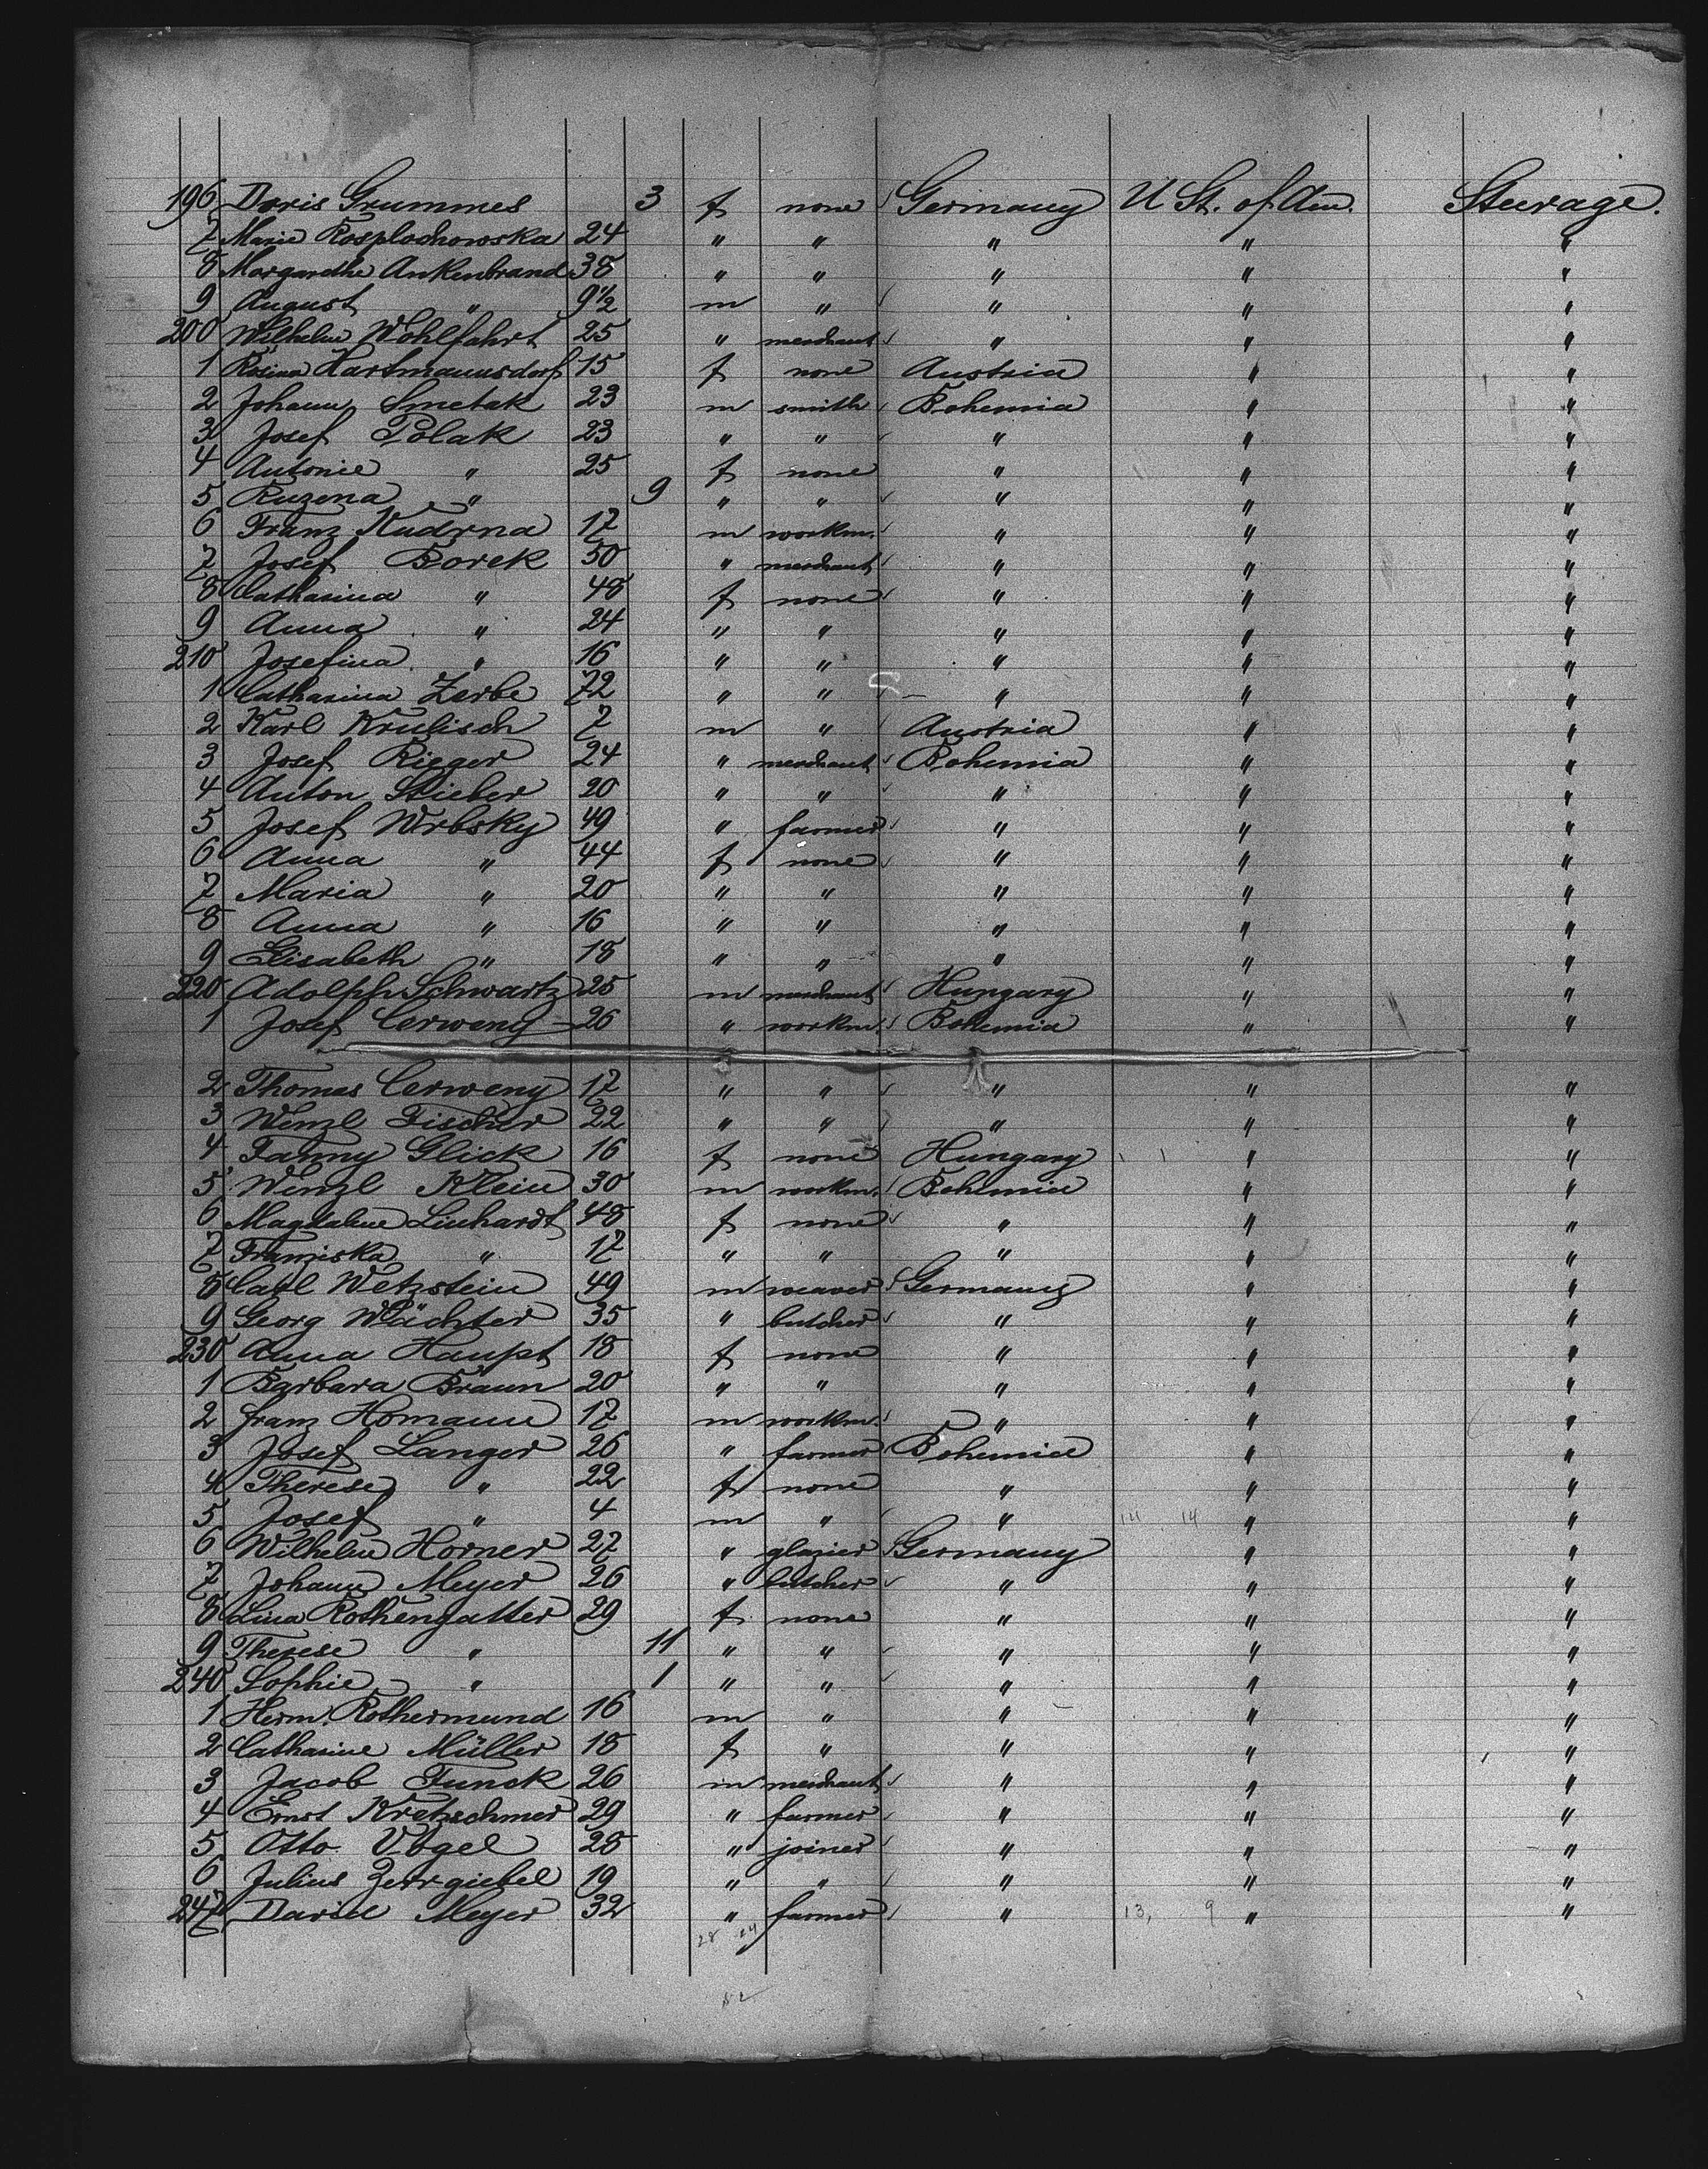 196 Doris Grummes 3 f none Germany U St. of Am. Steerage.
7 Marie Rosplochowska 24 " " " " "
8 Margarethe Ankenbrand 38 " " " " "
9 August " 9 1/2 m " " " "
200 Wilhelm Wohlfahrt 25 " merchant " " "
1 Rosina Hartmannsdorf 15 f none Austria " "
2 Johann Smetak 23 m smith Bohemia " "
3 Josef Polak 23 " " " " "
4 Antonie " 25 f none " " "
5 Ruzena " 9 " " " " "
6 Franz Kudrna 17 m workm. " " "
7 Josef Borek 50 " merchant " " "
8 Catharina " 48 f none " " "
9 Anna " 24 " " " " "
210 Josefina " 16 " " " " "
1 Catharina Zerbe 72 " " " " "
2 Karl Krulisch 7 m " Austria " "
3 Josef Rieger 24 " merchant Bohemia " "
4 Anton Stieber 20 " " " " "
5 Josef Wrbsky 49 " farmer " " "
6 Anna " 44 f none " " "
7 Maria " 20 " " " " "
8 Anna " 16 " " " " "
9 Elisabeth " 18 " " " " "
220 Adolph Schwartz 25 m merchant Hungary " "
1 Josef Cerweny 26 " workm. Bohemia " "
2 Thomas Cerweny 17 " " " " "
3 Wenzl Fischer 22 " " " " "
4 Fanny Glick 16 f none Hungary " "
5 Wenzl Klein 30 m workm. Bohemia " "
6 Magdalene Linhardt 48 f none " " "
7 Franziska " 17 " " " " "
8 Carl Wetzstein 49 m weaver Germany " "
9 Georg Wächter 35 " butcher " " "
230 Anna Haupt 18 f none " " "
1 Barbara Braun 20 " " " " "
2 Franz Homann 17 m workm. " " "
3 Josef Langer 26 " farmer Bohemia " "
4 Therese " 22 f none " " "
5 Josef " 4 m " " 14 14 " "
6 Wilhelm Horner 27 " glazier Germany " "
7 Johann Meyer 26 " butcher " " "
8 Lina Rothengatter 29 f none " " "
9 Therese " 11 " " " " "
240 Sophie " 1 " " " " "
1 Herm. Rothermund 16 m " " " "
2 Catharine Müller 18 f " " " "
3 Jacob Funck 26 m merchant " " "
4 Ernst Kretzschmer 29 " farmer " " "
5 Otto Vogel 28 " joiner " " "
6 Julius Zerrgiebel 19 " " " " "
247 David Meyer 32 " farmer " 13, 9 " "
28 24